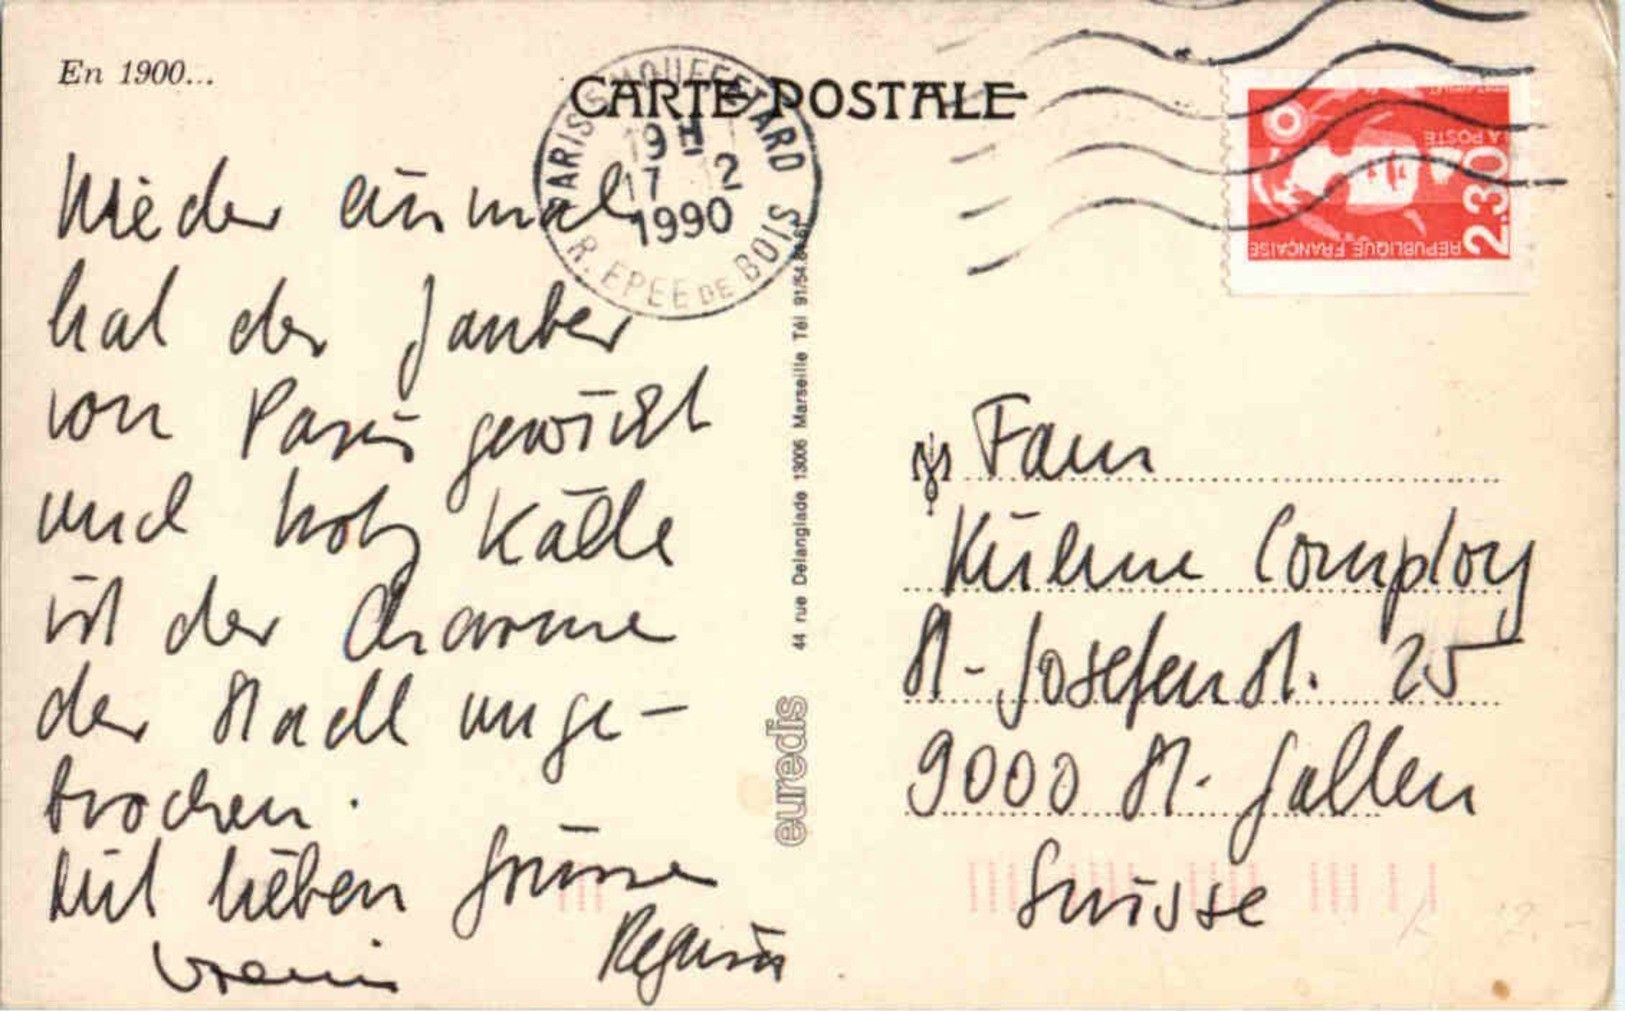 En 1900...
CARTE POSTALE
PARIS MOUFFETARD
19 H
17 2
1990
R. EPEE DE BOIS
LA POSTE
2.30
REPUBLIQUE FRANÇAISE
Wieder einmal
hat der Zauber
von Paris gewirkt
und trotz Kälte
ist der Charme
der Stadt unge-
brochen.
Mit lieben Grüsse
Regina
euredis
44 rue Delanglade 13006 Marseille Tél
Fam
Kühne Comploy
St-Josefenst. 25
9000 St. Gallen
Suisse